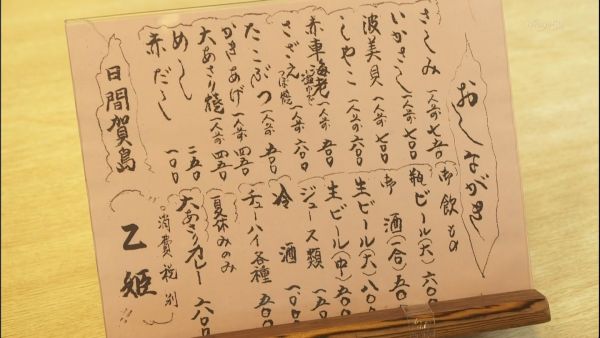 おしながき
さしみ 一人前 七五〇
いかさし 一人前 七〇〇
波美貝 一人前 七〇〇
しゃこ 一人前 六〇〇
赤車海老 塩ゆで 一人前 五〇〇
さざえ つぼ焼 一人前 六〇〇
たこぶつ 一人前 五〇〇
かきあげ 一人前 四五〇
大あさり焼 一人前 四五〇
めし 二五〇
赤だし 一〇〇
日間賀島
御飲もの
瓶ビール(大) 六〇〇
御酒(一合) 五〇〇
生ビール(大) 八〇〇
生ビール(中) 五〇〇
ジュース類 一五〇
冷酒 一〇〇〇
チューハイ各種 五〇〇
夏休みのみ
大あさりカレー 六〇〇
○消費税別
乙姫!!